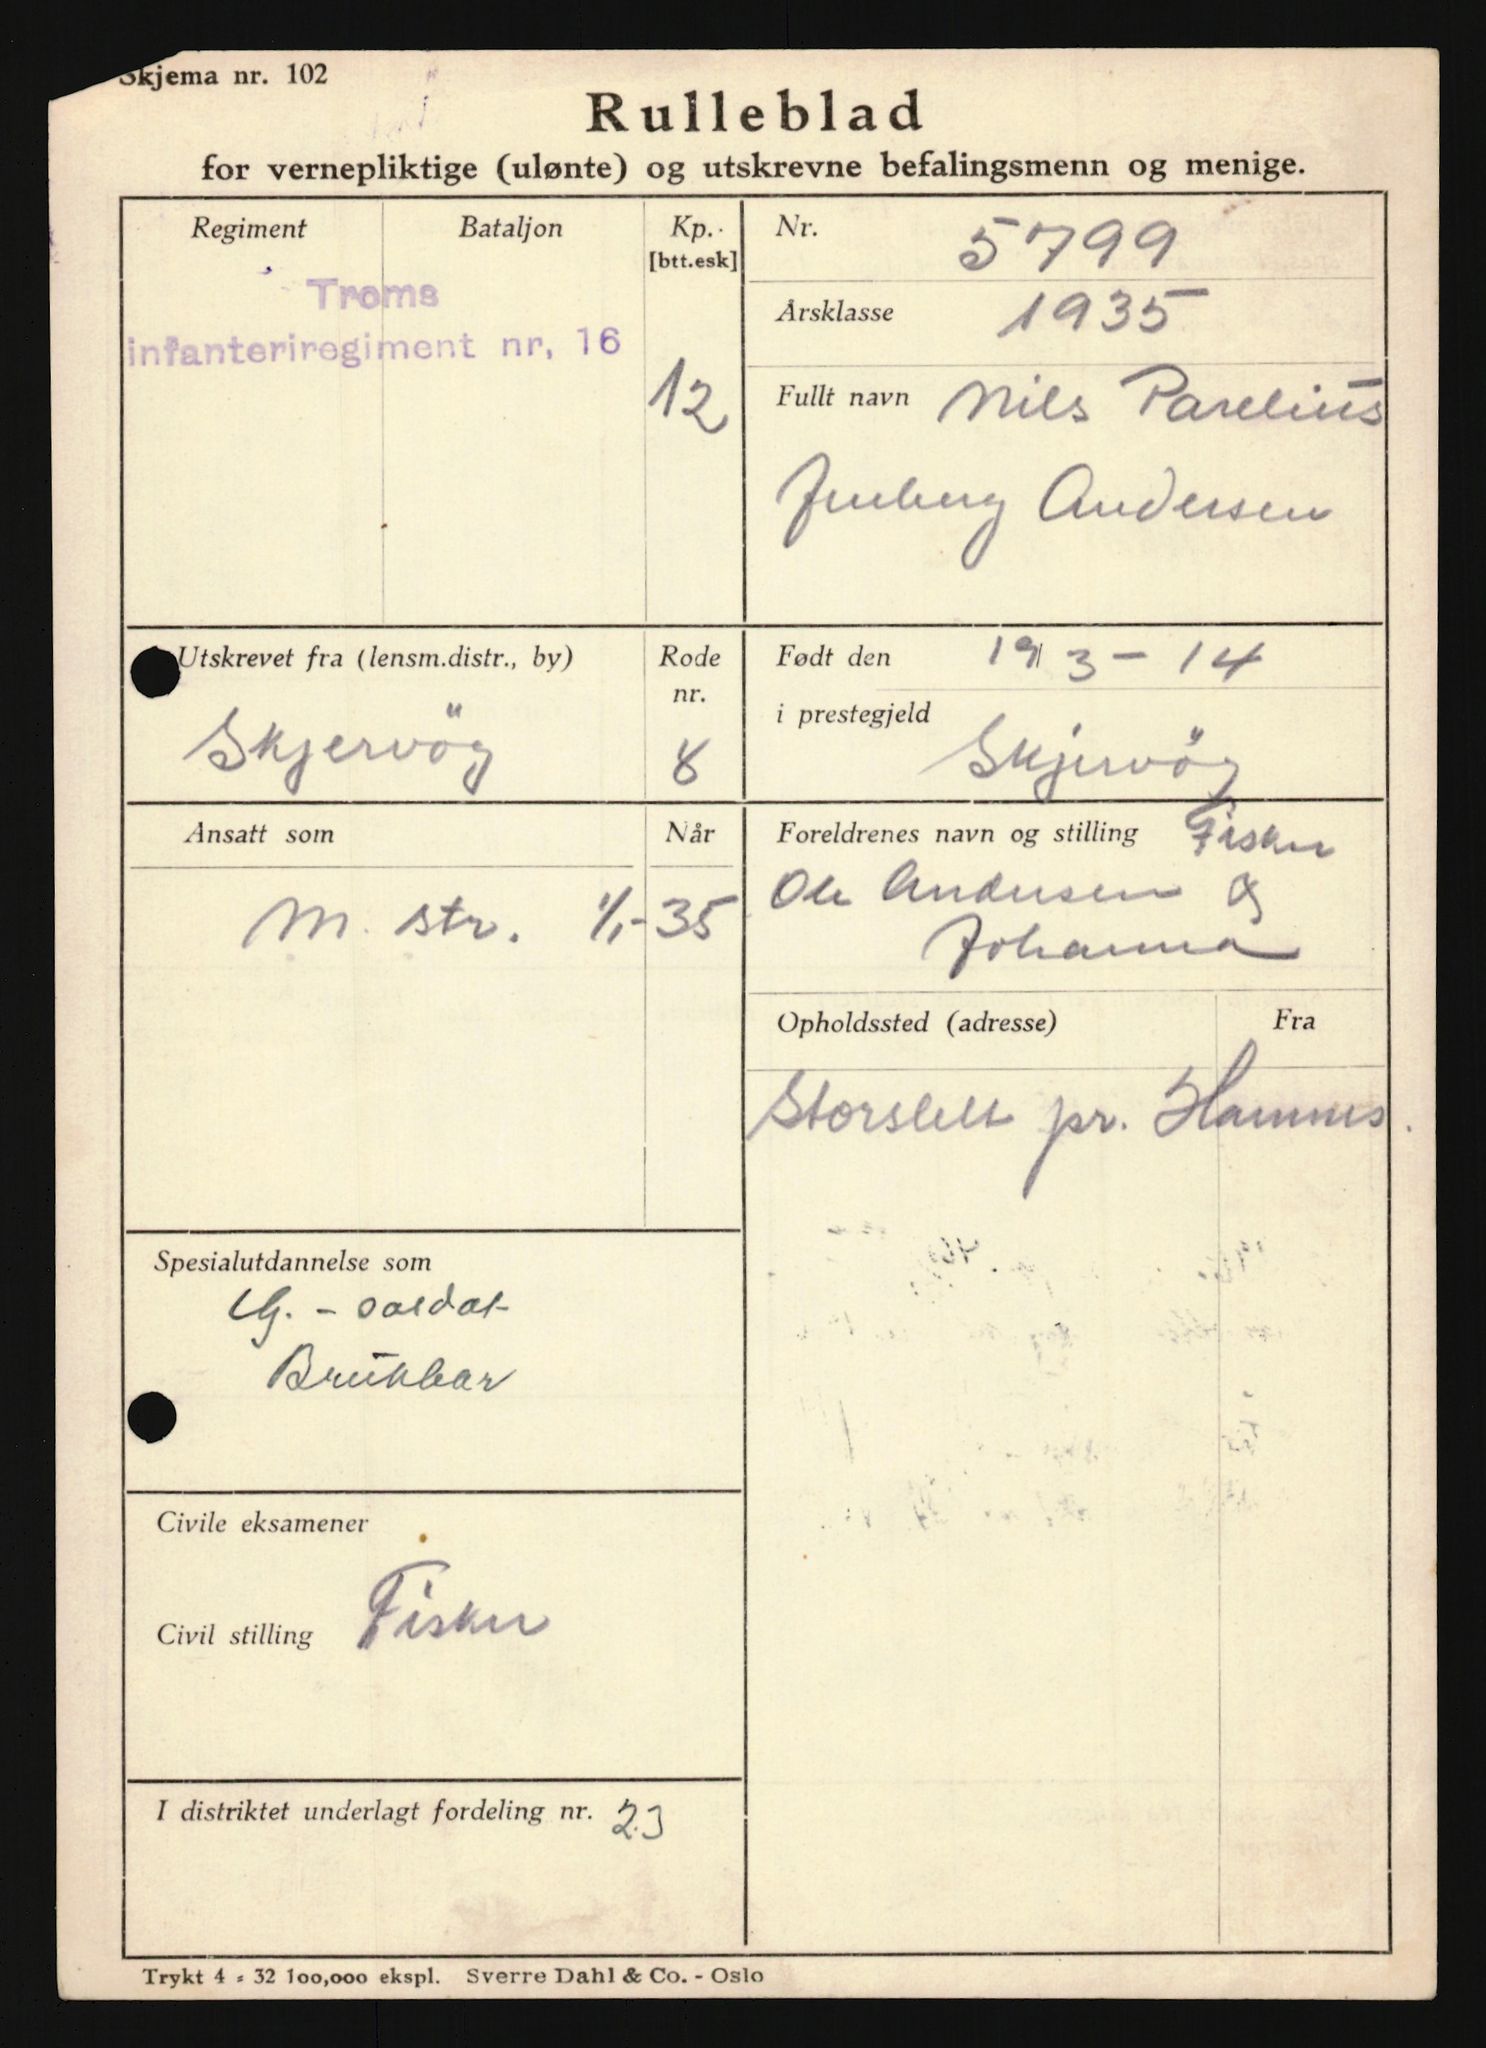 Skjema nr. 102
Rulleblad
for vernepliktige (ulønte) og utskrevne befalingsmenn og menige.
Regiment
Bataljon
Kp.
[btt.esk]
Troms
infanteriregiment nr, 16
12
Nr. 5799
Årsklasse 1935
Fullt navn Nils Parelius
Jenberg Andersen
Utskrevet fra (lensm.distr., by)
Rode
nr.
Skjervöy
8
Født den 19/3-14
i prestegjeld
Skjervöy
Ansatt som
Når
M. str. 1/1-35
Foreldrenes navn og stilling Fisker
Ole Andersen og
Johanna
Opholdssted (adresse)
Fra
Storslett pr. Hamnes.
Spesialutdannelse som
G. - soldat
Brukbar
Civile eksamener
Civil stilling Fisker
I distriktet underlagt fordeling nr. 23
Trykt 4 - 32 100,000 ekspl. Sverre Dahl & Co. - Oslo